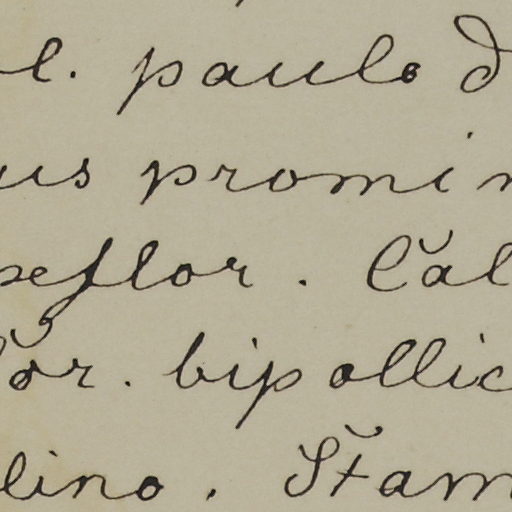 l. paulo d
us promin
seflor. Cal
or. bipollic
lino. Stam